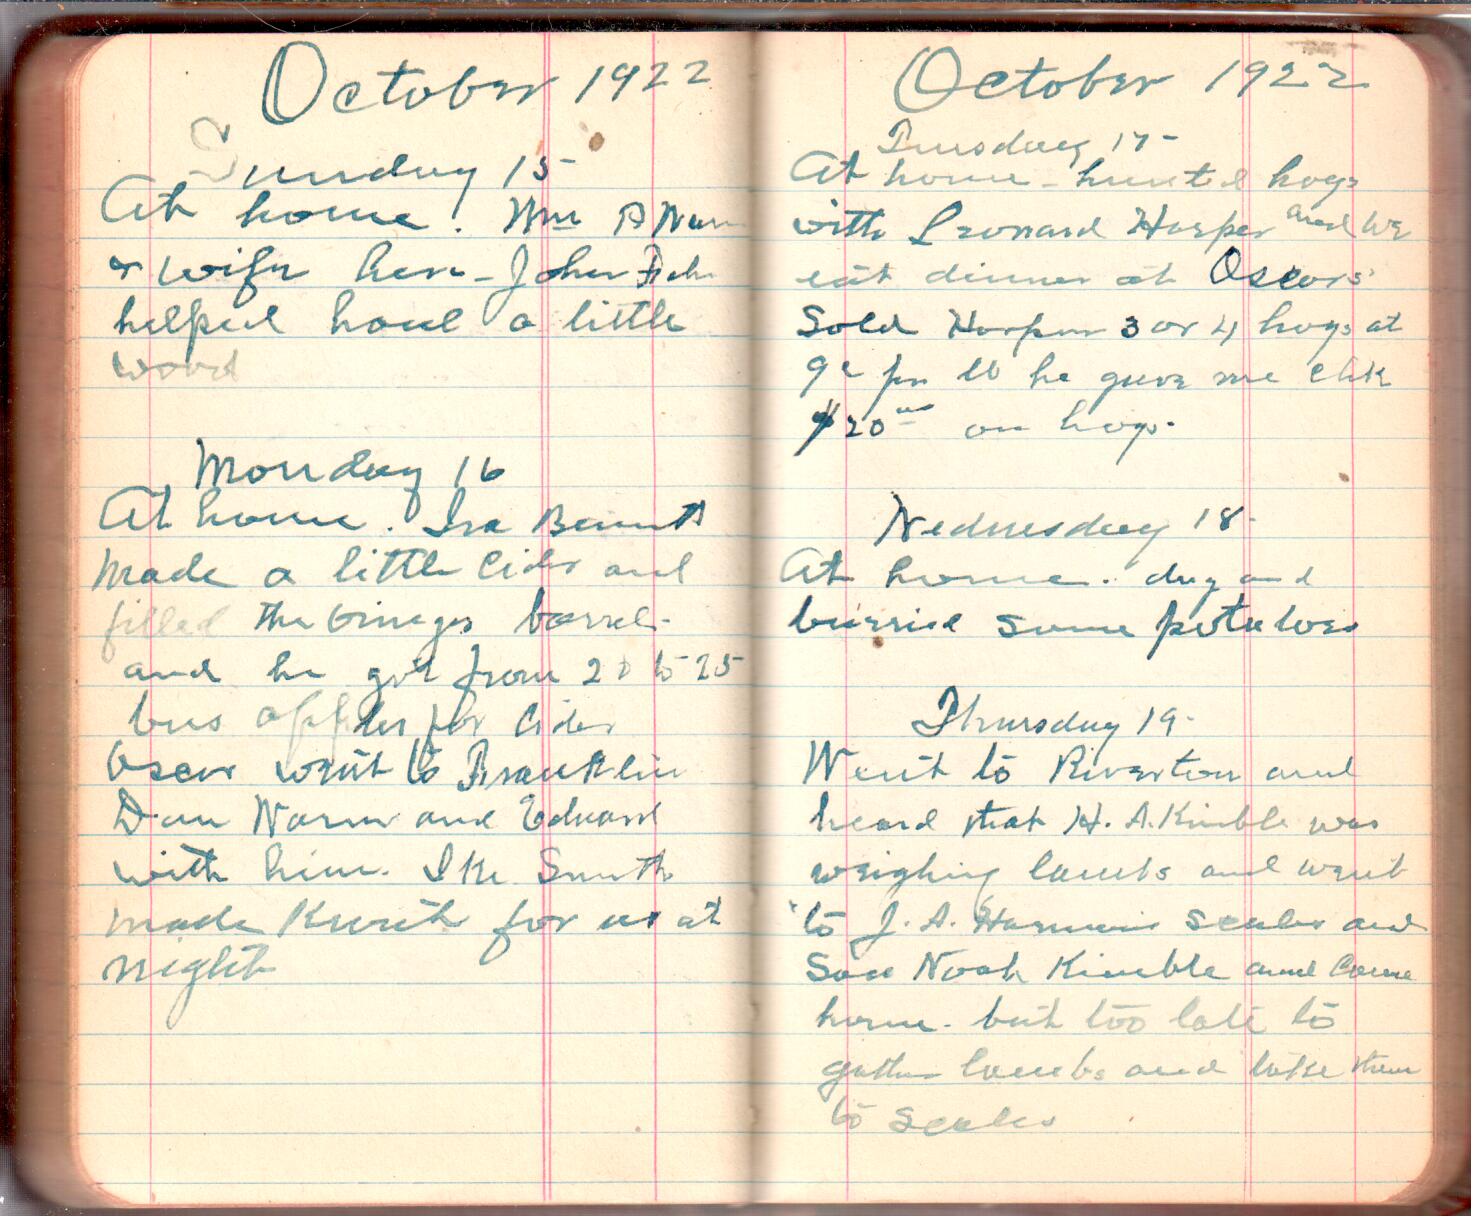 October 1922
Sunday 15
At home. Wm B Nun
& wife here - John
helped haul a little
wood
Monday 16
At home. Ira Bennett
made a little Cider and
filled the vinegar barrel.
and he got from 20 to 25
bus apples for Cider
Oscar went to Franklin
Dan Warner and Edward
with him. Ike Smith
made Kraut for us at
night
October 1922
Tuesday 17-
At home - hunted hogs
with Leonard Harper and we
eat dinner at Oscars'
Sold Harper 3 or 4 hogs at
9c per lb he gave me chk
$20 on hogs.
Wednesday 18-
At home. dug and
burried some potatoes
Thursday 19-
Went to Riverton and
heard that H. A. Kimble was
weighing lambs and went
to J. A. Harmans scales and
Saw Noah Kimble and Come
home. but too late to
gather lambs and take them
to scales